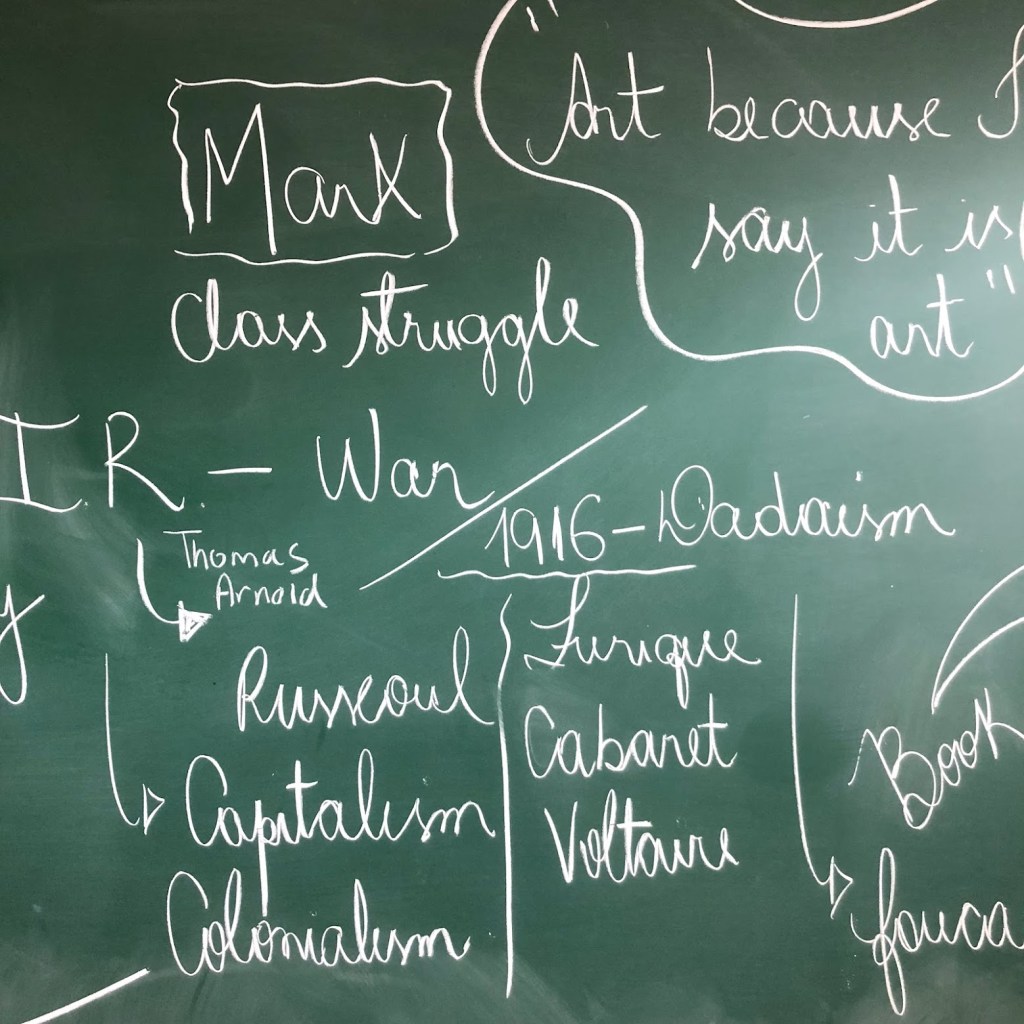 Marx
class struggle
"Art because I
say it is
art"
I.R. — War
Thomas
Arnold
Russeoul
Capitalism
Colonialism
1916 - Dadaism
Zurique
Cabaret
Voltaire
Book
fouca